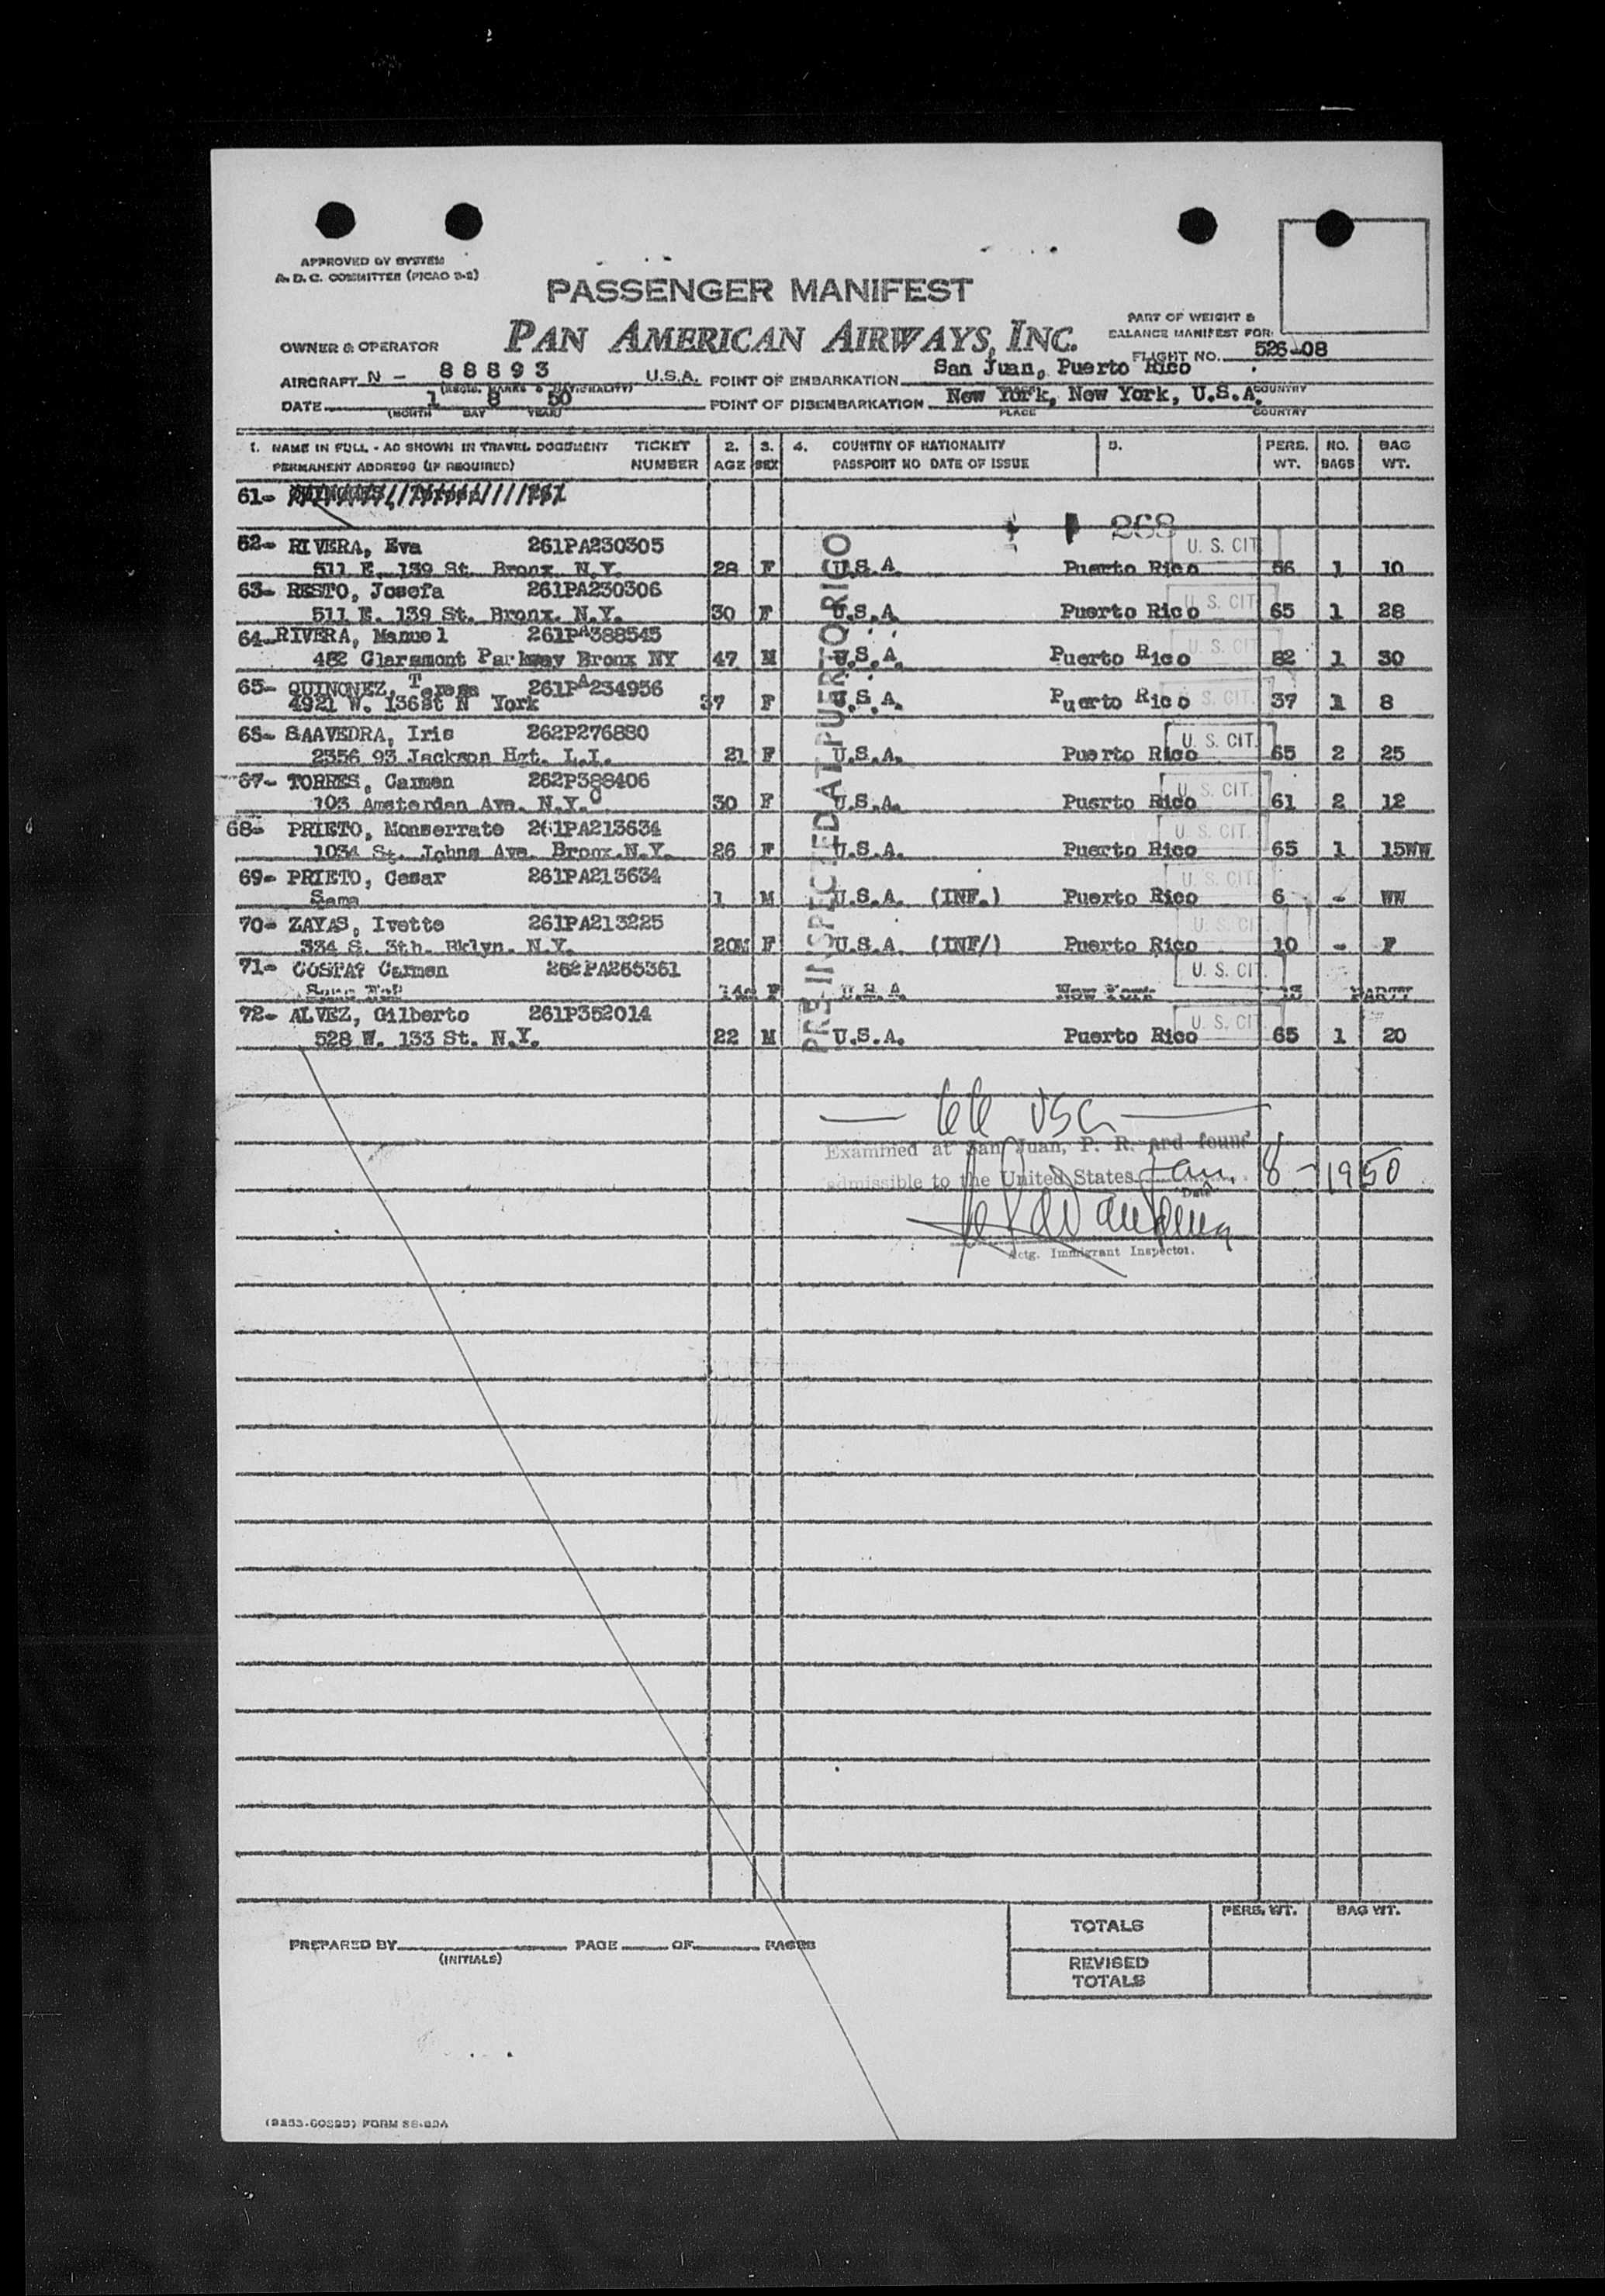 APPROVED BY SYSTEM
A. D. C. COMMITTEE (PICAO 3-2)
PASSENGER MANIFEST
PAN AMERICAN AIRWAYS, INC.
PART OF WEIGHT &
BALANCE MANIFEST FOR:
OWNER & OPERATOR
FLIGHT NO. 526-08
AIRCRAFT N - 88893 U.S.A. POINT OF EMBARKATION San Juan, Puerto Rico
(REGIS. MARKS & NATIONALITY) COUNTRY
DATE 1 8 50 POINT OF DISEMBARKATION New York, New York, U.S.A.
(MONTH DAY YEAR) PLACE COUNTRY
1. NAME IN FULL - AS SHOWN IN TRAVEL DOCUMENT TICKET 2. 3. 4. COUNTRY OF NATIONALITY 5. PERS. NO. BAG
PERMANENT ADDRESS (IF REQUIRED) NUMBER AGE SEX PASSPORT NO DATE OF ISSUE WT. BAGS WT.
61-
268
62- RIVERA, Eva 261PA230305 U. S. CIT
511 E. 139 St. Bronx. N.Y. 28 F U.S.A. Puerto Rico 56 1 10
63- RESTO, Josefa 261PA230306 U. S. CIT
511 E. 139 St. Bronx. N.Y. 30 F U.S.A. Puerto Rico 65 1 28
64- RIVERA, Manuel 261PA388545 U. S. CIT
482 Claremont Parkway Bronx NY 47 M U.S.A. Puerto Rico 82 1 30
65- QUINONEZ, Teresa 261PA234956
4921 W. 136St N York 37 F U.S.A. Puerto Rico S. CIT. 37 1 8
66- SAAVEDRA, Iris 262P276880 U. S. CIT.
2356 93 Jackson Hgt. L.I. 21 F U.S.A. Puerto Rico 65 2 25
67- TORRES, Carmen 262P388406 U. S. CIT.
103 Amsterdan Ave. N.Y.C 30 F U.S.A. Puerto Rico 61 2 12
68- PRIETO, Monserrate 261PA213634 U. S. CIT.
1034 St. Johns Ave. Bronx.N.Y. 26 F U.S.A. Puerto Rico 65 1 15WW
69- PRIETO, Cesar 261PA213634 U. S. CIT
Same 1 M U.S.A. (INF.) Puerto Rico 6 - WW
70- ZAYAS, Ivette 261PA213225 U. S. CI
334 S. 3th. Bklyn. N.Y. 20M F U.S.A (INF/) Puerto Rico 10 - F
71- COSTA? Carmen 262PA265361 U. S. CIT.
14m F U.S.A. New York 13
72- ALVEZ, Gilberto 261P352014 U. S. CIT
528 W. 133 St. N.Y. 22 M U.S.A. Puerto Rico 65 1 20
PRE-INSPECTED AT PUERTO RICO
USC
Examined at San Juan, P. R. and found
admissible to the United States Jan. 8 - 1950
Date
Actg. Immigrant Inspector.
PREPARED BY PAGE OF PAGES
(INITIALS)
TOTALS PERS. WT. BAG WT.
REVISED
TOTALS